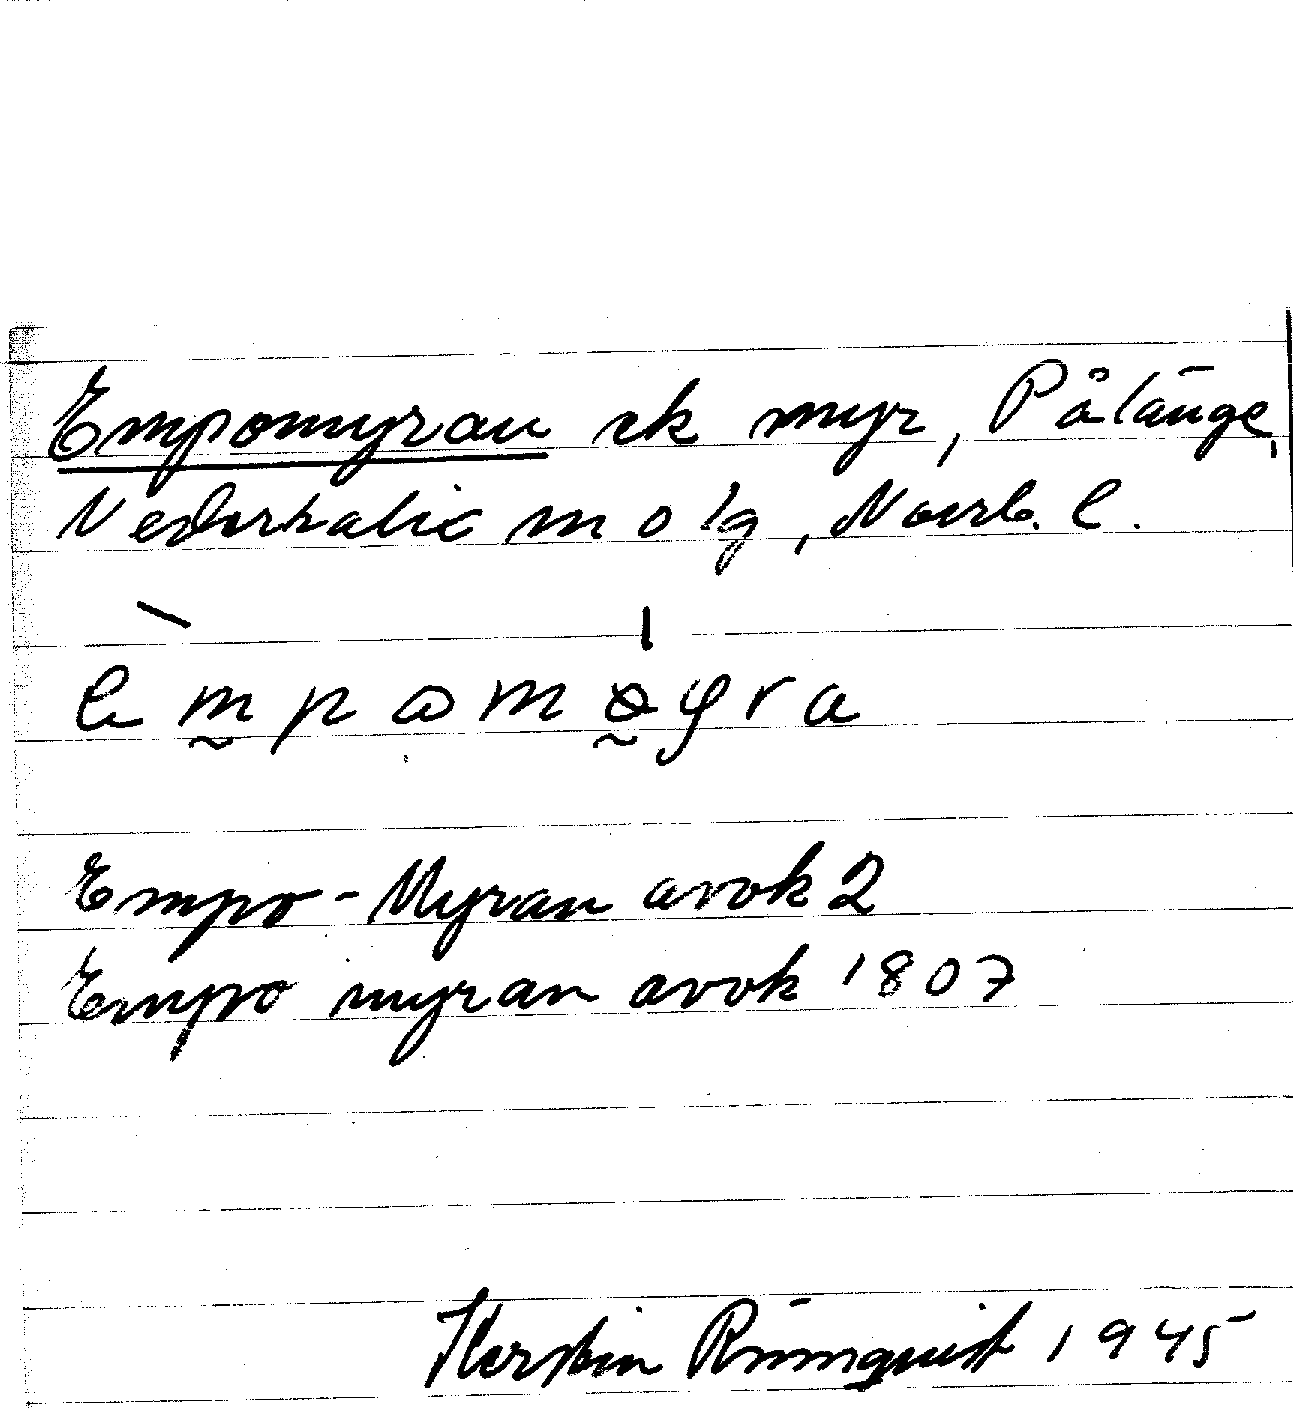 Empomyran sk myr, Pålänge,
Nederkalix m o lg, Norrb. l.
Empo-Myran avok 2
Empo myran avok 1807
Kerstin Rönnquist 1945